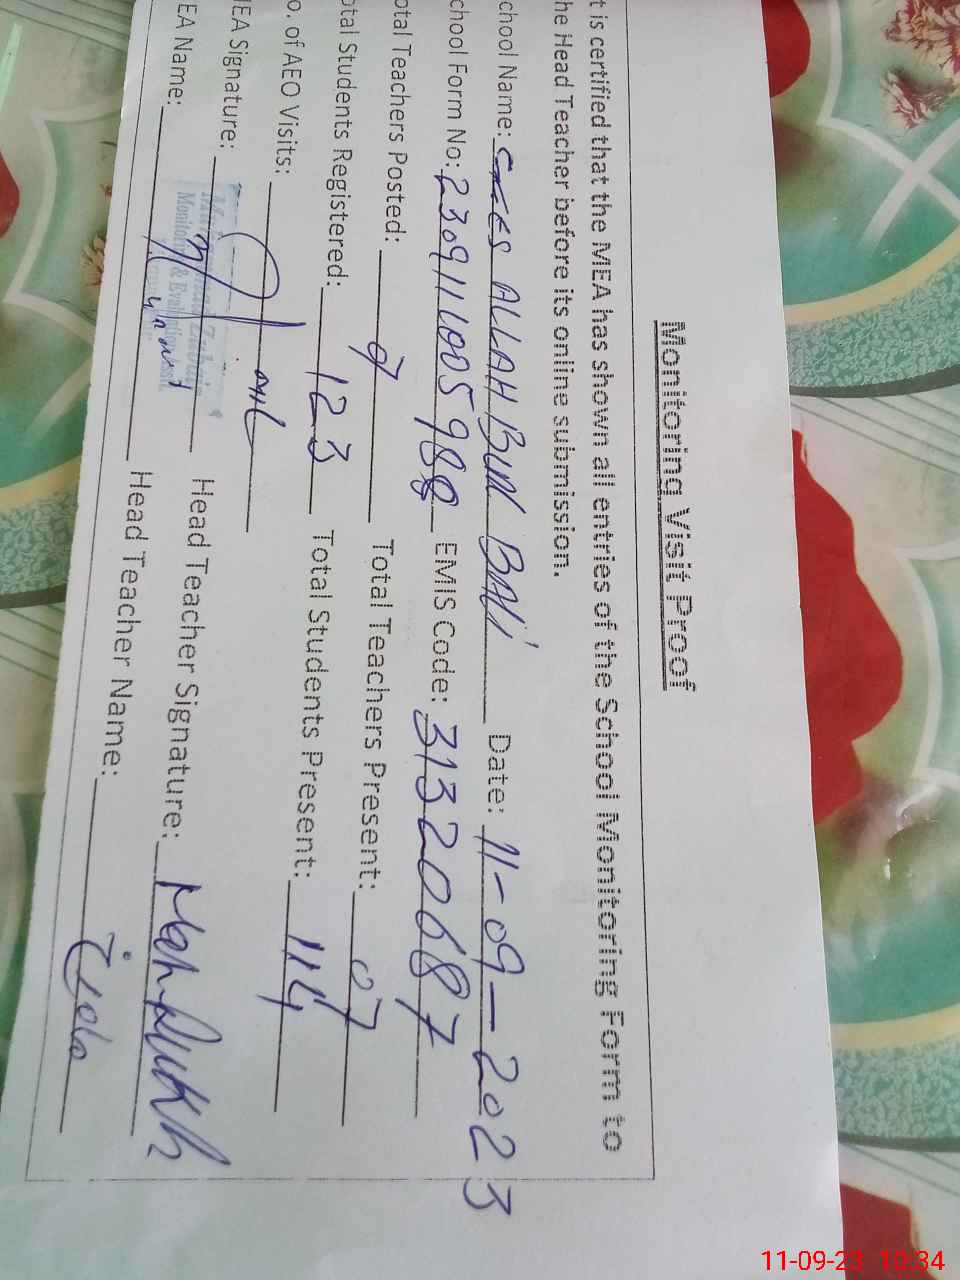 Monitoring Visit Proof
t is certified that the MEA has shown all entries of the School Monitoring Form to
he Head Teacher before its online submission.
chool Name: ALLAH BUN BALI Date: 11-09-2023
chool Form No: 2309111005988 EMIS Code: 31320687
otal Teachers Posted: Total Teachers Present: 07
otal Students Registered: 123 Total Students Present: 114
o. of AEO Visits:
MEA Signature: Head Teacher Signature:
EA Name: Head Teacher Name:
Monitoring & Evaluation
11-09-23 10:34